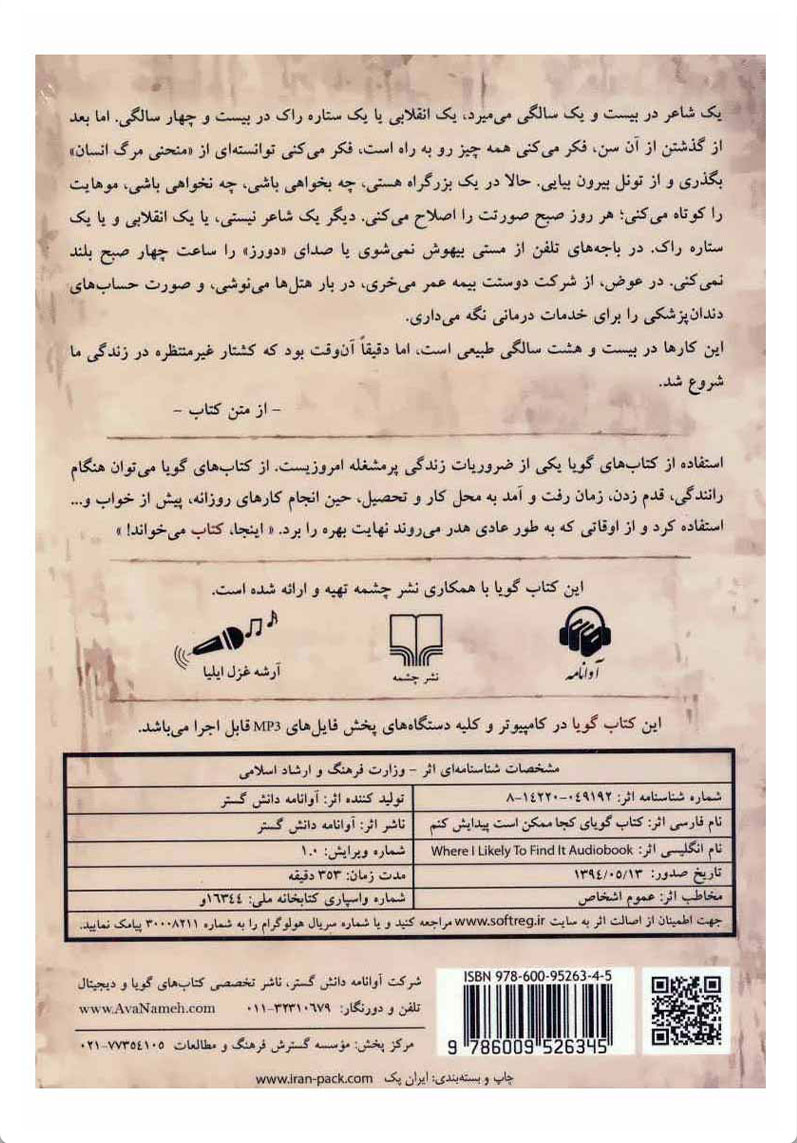 یک شاعر در بیست و یک سالگی می‌میرد، یک انقلابی یا یک ستاره راک در بیست و چهار سالگی. اما بعد
از گذشتن از آن سن، فکر می‌کنی همه چیز رو به راه است، فکر می‌کنی توانسته‌ای از «منحنی مرگ انسان»
بگذری و از تونل بیرون بیایی. حالا در یک بزرگراه هستی، چه بخواهی باشی، چه نخواهی باشی، موهایت
را کوتاه می‌کنی؛ هر روز صبح صورتت را اصلاح می‌کنی. دیگر یک شاعر نیستی، یا یک انقلابی و یا یک
ستاره راک. در باجه‌های تلفن از مستی بیهوش نمی‌شوی یا صدای «دورز» را ساعت چهار صبح بلند
نمی‌کنی. در عوض، از شرکت دوستت بیمه عمر می‌خری، در بار هتل‌ها می‌نوشی، و صورت حساب‌های
دندان‌پزشکی را برای خدمات درمانی نگه می‌داری.
این کارها در بیست و هشت سالگی طبیعی است، اما دقیقاً آن‌وقت بود که کشتار غیرمنتظره در زندگی ما
شروع شد.
- از متن کتاب -
استفاده از کتاب‌های گویا یکی از ضروریات زندگی پرمشغله امروزیست. از کتاب‌های گویا می‌توان هنگام
رانندگی، قدم زدن، زمان رفت و آمد به محل کار و تحصیل، حین انجام کارهای روزانه، پیش از خواب و...
استفاده کرد و از اوقاتی که به طور عادی هدر می‌روند نهایت بهره را برد. « اینجا، کتاب می‌خواند! »
این کتاب گویا با همکاری نشر چشمه تهیه و ارائه شده است.
آوانامه
نشر چشمه
آرشه غزل ایلیا
این کتاب گویا در کامپیوتر و کلیه دستگاه‌های پخش فایل‌های MP3 قابل اجرا می‌باشد.
مشخصات شناسنامه‌ای اثر - وزارت فرهنگ و ارشاد اسلامی
شماره شناسنامه اثر: ۰۴۹۱۹۲-۱۴۲۲۰-۸
تولید کننده اثر: آوانامه دانش گستر
نام فارسی اثر: کتاب گویای کجا ممکن است پیدایش کنم
ناشر اثر: آوانامه دانش گستر
نام انگلیسی اثر: Where I Likely To Find It Audiobook
شماره ویرایش: ۱.۰
تاریخ صدور: ۱۳۹۴/۰۵/۱۳
مدت زمان: ۳۵۳ دقیقه
مخاطب اثر: عموم اشخاص
شماره واسپاری کتابخانه ملی: ۱۶۳۴۴و
جهت اطمینان از اصالت اثر به سایت www.softreg.ir مراجعه کنید و یا شماره سریال هولوگرام را به شماره ۳۰۰۰۸۲۱۱ پیامک نمایید.
شرکت آوانامه دانش گستر، ناشر تخصصی کتاب‌های گویا و دیجیتال
تلفن و دورنگار: ۰۱۱-۳۲۳۱۰۶۷۹ www.AvaNameh.com
مرکز پخش: مؤسسه گسترش فرهنگ و مطالعات ۰۲۱-۷۷۳۵۴۱۰۵
ISBN 978-600-95263-4-5
9 786009 526345
چاپ و بسته‌بندی: ایران پک www.iran-pack.com